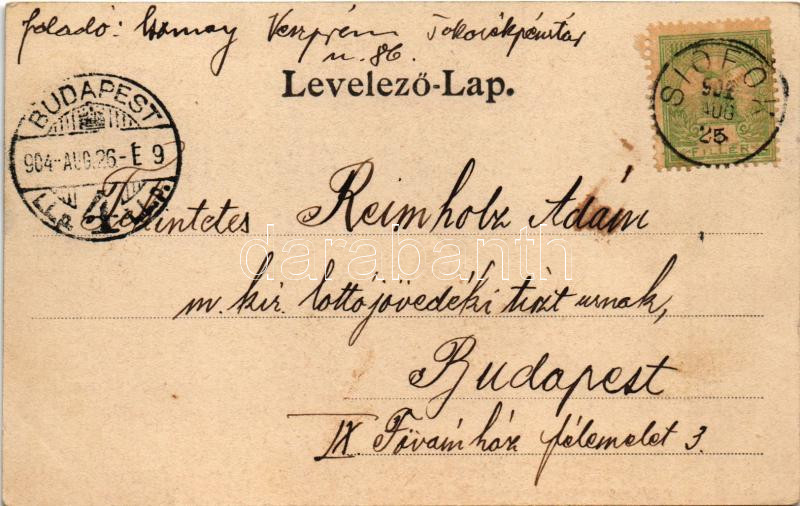 feladó: Veszprém Takarékpénztár
u. 86.
Levelező-Lap.
BUDAPEST
904-AUG.26-É 9
SIÓFOK
904
AUG
25
FILLÉR
Tekintetes Reimholz Ádám
m. kir. lottójövedéki tiszt urnak,
Budapest
IX Fővámház félemelet 3.
darabanth